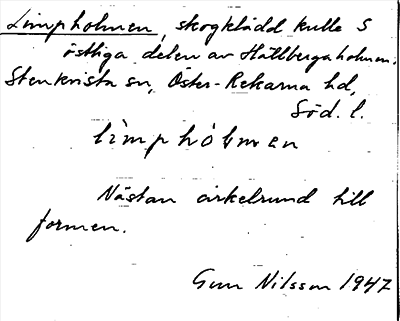 Limpholmen, skogklädd kulle S
östliga delen av Hällbergaholmen.
Stenkvista sn, Öster-Rekarne hd,
Söd. l.
lìmphòlmen
Nästan cirkelrund till
formen.
Gun Nilsson 1947